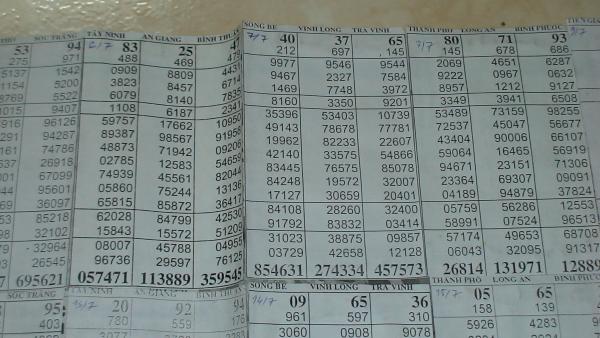 SOC TRANG
53 94
275 971
5137 1542
1154 5200
8769 5522
1015 9407
96126
94287
74786
26918
67099
95601
36097
85218
32102
-32964
26545
695621
SOC TRANG
95
403
TÂY NINH AN GIANG BÌNH THU
6/7 83 25 4
488 469 479
0909 8809 4431
3823 8457 6714
6079 8140 7835
1108 6187 2341
59757 17662 10950
89387 98567 91958
48873 71942 09206
02785 12583 54659
74939 45561 82044
05860 75244 13136
65815 85872 36417
62028 84799 42530
15843 15572 51209
08007 45788 04955
96736 29597 76125
057471 113889 359545
TÂY NINH AN GIANG BÌNH THU
13/7 20 92 94
780 559 176
SONG BE VINH LONG TRA VINH
7/7 40 37 65
212 697 145
9977 9546 9544
9467 2327 7584
1469 7748 3972
8160 3350 9201
35396 53403 10739
49143 78678 77781
19962 82233 22607
42140 33575 54866
83445 76575 85078
84248 19572 32007
17127 30659 20401
84108 28260 32400
91792 83832 03414
31023 38875 09857
03729 42658 12128
854631 274334 457573
SONG BE VINH LONG TRA VINH
14/7 09 65 36
961 597 310
3060 0908 9078
THANH PHO LONG AN BINH PHUOC
7/7 80 71 93
145 678 686
2069 4651 6287
9222 0967 0632
8957 1212 9127
3349 3941 6508
53489 73159 98255
72537 45047 56677
43404 90006 66107
59066 16465 56919
94671 23151 71306
23364 69307 09091
04189 94879 37824
05759 56286 12553
58991 07524 96513
57174 49653 68708
06043 32095 91317
26814 131971 12889
THANH PHO LONG AN BINH PHUOC
15/7 05 65 4
158 139
5926 4283
TIEN GIA